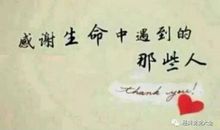 感谢生命中遇到的
那些人
thank you!